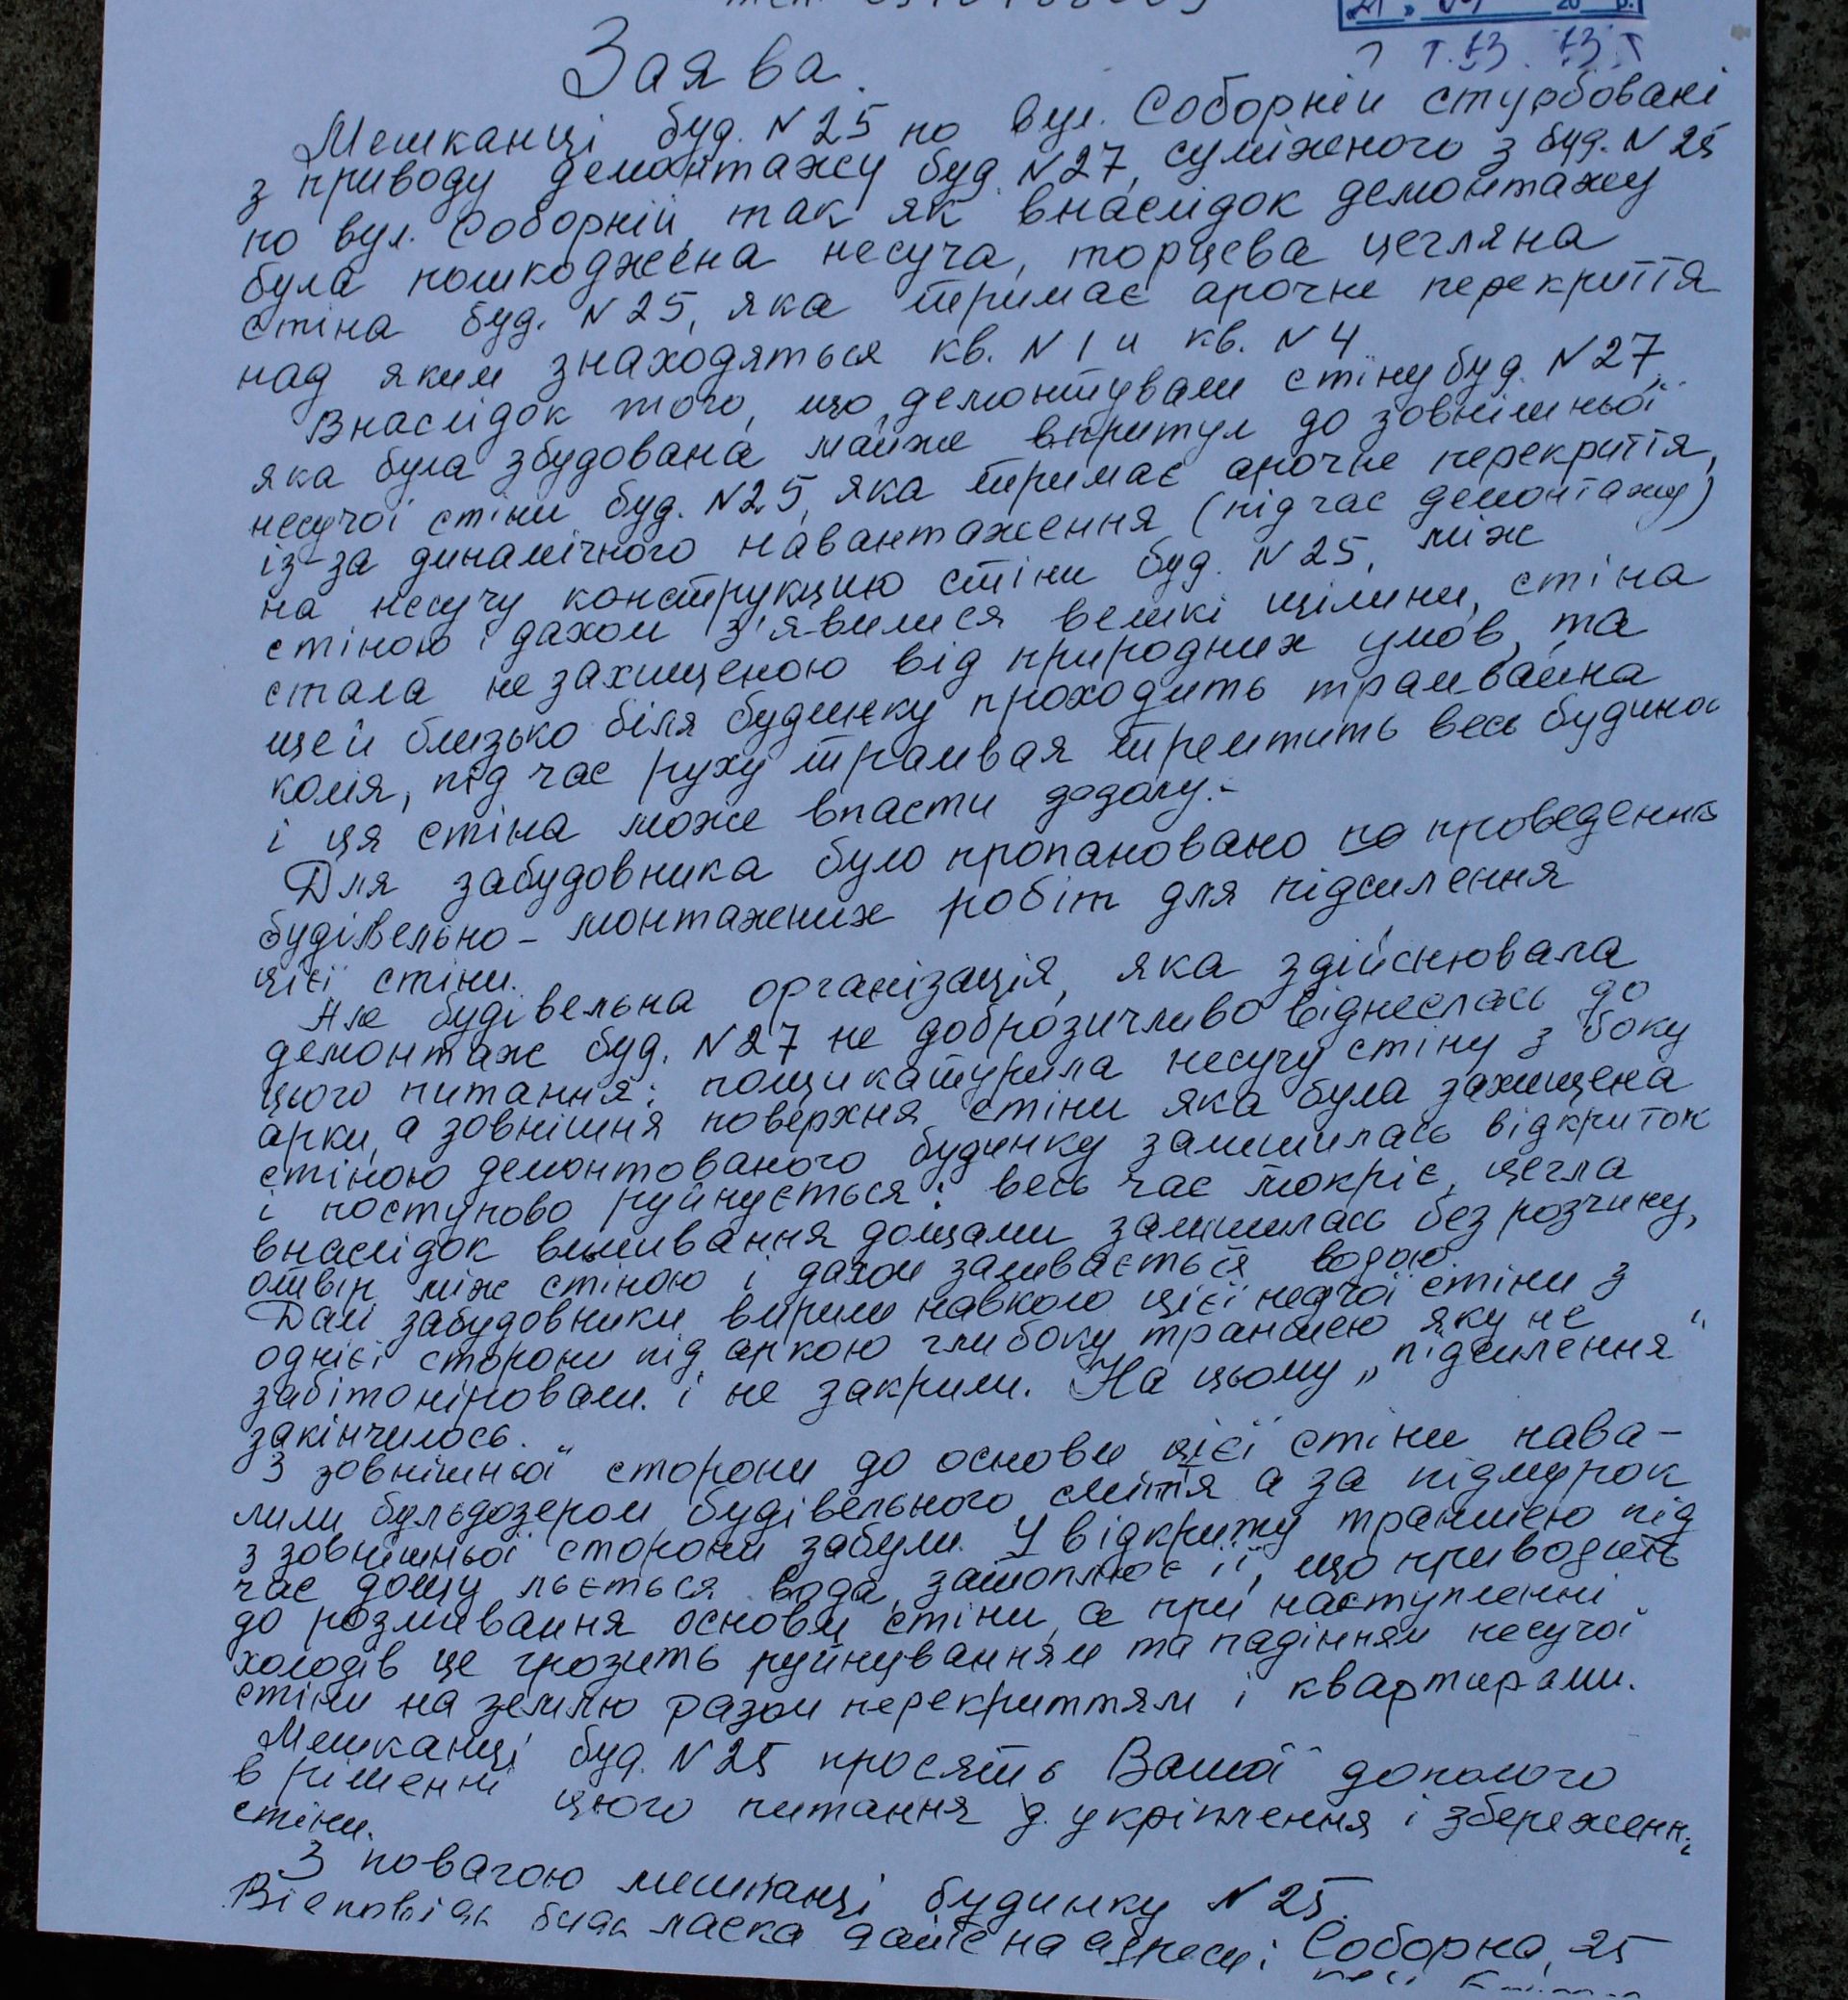 Заява.
Мешканці буд. N 25 по вул. Соборній стурбовані
з приводу демонтажу буд. N 27, суміжного з буд. N 25
по вул. Соборній, так як внаслідок демонтажу
була пошкоджена несуча, торцева цегляна
стіна буд. N 25, яка тримає арочне перекриття
над яким знаходяться кв. N 1 и кв. N 4
Внаслідок того, що демонтували стіну буд. N 27,
яка була збудована майже впритул до зовнішньої
несучої стіни буд. N 25, яка тримає арочне перекриття,
із-за динамічного навантаження (під час демонтажу)
на несучу конструкцію стіни буд. N 25, між
стіною і дахом з'явилися великі щілини, стіна
стала не захищеною від природних умов, та
щей близько біля будинку проходить трамвайна
колія, під час руху трамвая тремтить весь будинок
і ця стіна може впасти додолу.-
Для забудовника було пропановано по проведення
будівельно - монтажних робіт для підсилення
цієї стіни.
Але будівельна організація, яка здійснювала
демонтаж буд. N 27 не доброзичливо віднеслась до
цього питання: пощикатурила несучу стіну з боку
арки, а зовнішня поверхня стіни яка була захищена
стіною демонтованого будинку залишилась відкритою
і поступово руйнується: весь час мокріє, цегла
внаслідок вимивання дощами залишилась без розчину,
отвір між стіною і дахом заливається водою.
Далі забудовники вирили навколо цієї несучої стіни з
однієї сторони під аркою глибоку траншею яку не
забітоніровали. і не закрили. На цьому „підсилення"
закінчилось.
З зовнішньої сторони до основи цієї стіни нава-
лили бульдозером будівельного сміття а за підмурок
з зовнішньої сторони забули. У відкриту траншею під
час дощу льється вода, затоплює її, що приводить
до розмивання основи стіни, а при наступленні
холодів це грозить руйнуванням та падінням несучої
стіни на землю разом перекриттям і квартирами.
Мешканці буд. N 25 просять Вашої допомого
в рішенні цього питання д. укріплення і збереженні
стіни.
З повагою мешканці будинку N 25.
Відповідь будь ласка дайте на адресу: Соборна, 25